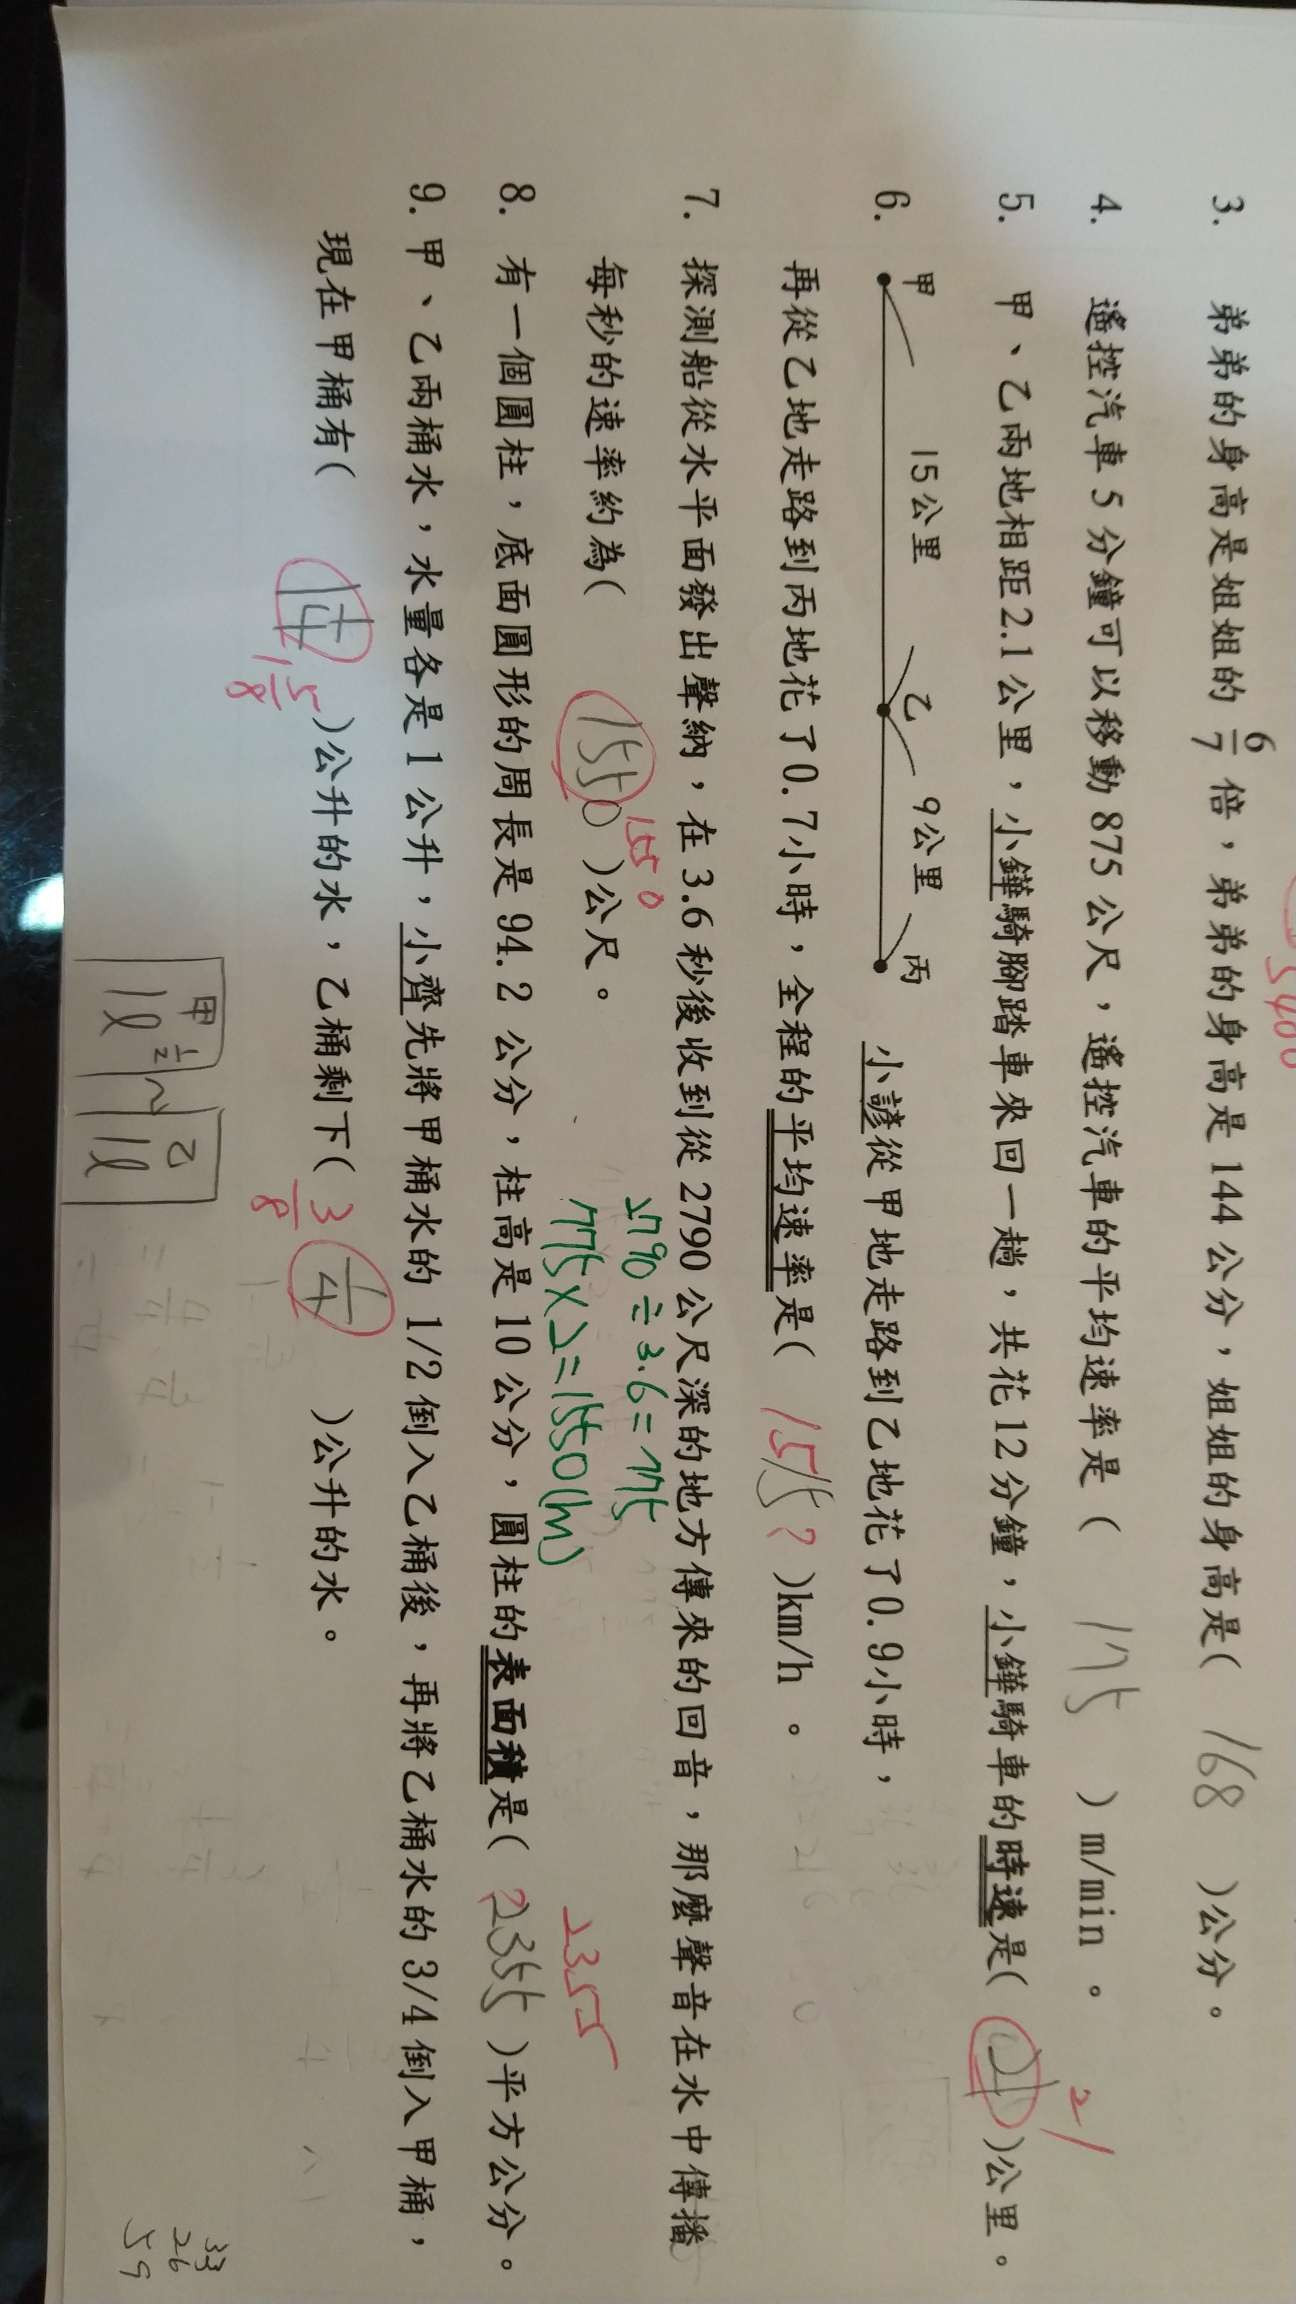 5400
3. 弟弟的身高是姐姐的 6/7 倍，弟弟的身高是144公分，姐姐的身高是( 168 )公分。
4. 遙控汽車5分鐘可以移動875公尺，遙控汽車的平均速率是( 175 )m/min。
21
5. 甲、乙兩地相距2.1公里，小鏵騎腳踏車來回一趟，共花12分鐘，小鏵騎車的時速是( 21 )公里。
甲 15公里 乙 9公里 丙
6. 小諺從甲地走路到乙地花了0.9小時，
再從乙地走路到丙地花了0.7小時，全程的平均速率是( 15 )km/h。
7. 探測船從水平面發出聲納，在3.6秒後收到從2790公尺深的地方傳來的回音，那麼聲音在水中傳播
2790÷3.6=775
1550
每秒的速率約為( 1550 )公尺。
775×2=1550(m)
2355
8. 有一個圓柱，底面圓形的周長是94.2公分，柱高是10公分，圓柱的表面積是( 2355 )平方公分。
9. 甲、乙兩桶水，水量各是1公升，小齊先將甲桶水的 1/2倒入乙桶後，再將乙桶水的3/4倒入甲桶，
現在甲桶有( 1 1/4 )公升的水，乙桶剩下( 1/4 )公升的水。
1 5/8
3/8
甲 1/2 乙
1ℓ 1ℓ
33
26
59